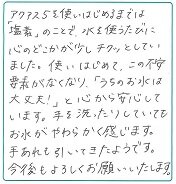 アクアス5を使いはじめるまでは
「塩素」のことで、水を使うたびに
心のどこかが少しチクッとしてい
ました。使いはじめて、この不安
要素がなくなり、「うちのお水は
大丈夫！」と心から安心して
います。手を洗ったりしていても
お水がやわらかく感じます。
手あれも引いてきたようです。
今後もよろしくお願いいたします。